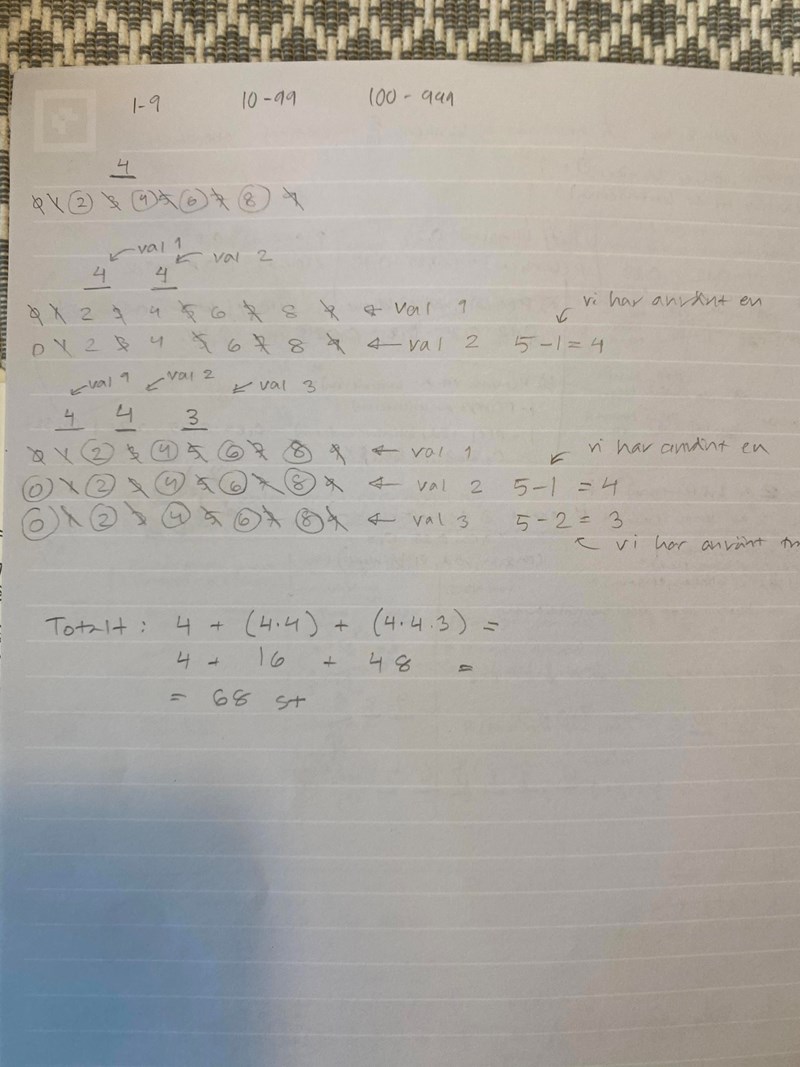 1-9 10-99 100-999
4
0 1 2 3 4 5 6 7 8 9
val 1 val 2
4 4
0 1 2 3 4 5 6 7 8 9 ← val 1 vi har använt en
0 1 2 3 4 5 6 7 8 9 ← val 2 5-1=4
val 1 val 2 val 3
4 4 3
0 1 2 3 4 5 6 7 8 9 ← val 1 vi har använt en
0 1 2 3 4 5 6 7 8 9 ← val 2 5-1 = 4
0 1 2 3 4 5 6 7 8 9 ← val 3 5-2 = 3
vi har använt
Totalt: 4 + (4·4) + (4·4·3) =
4 + 16 + 48 =
= 68 st